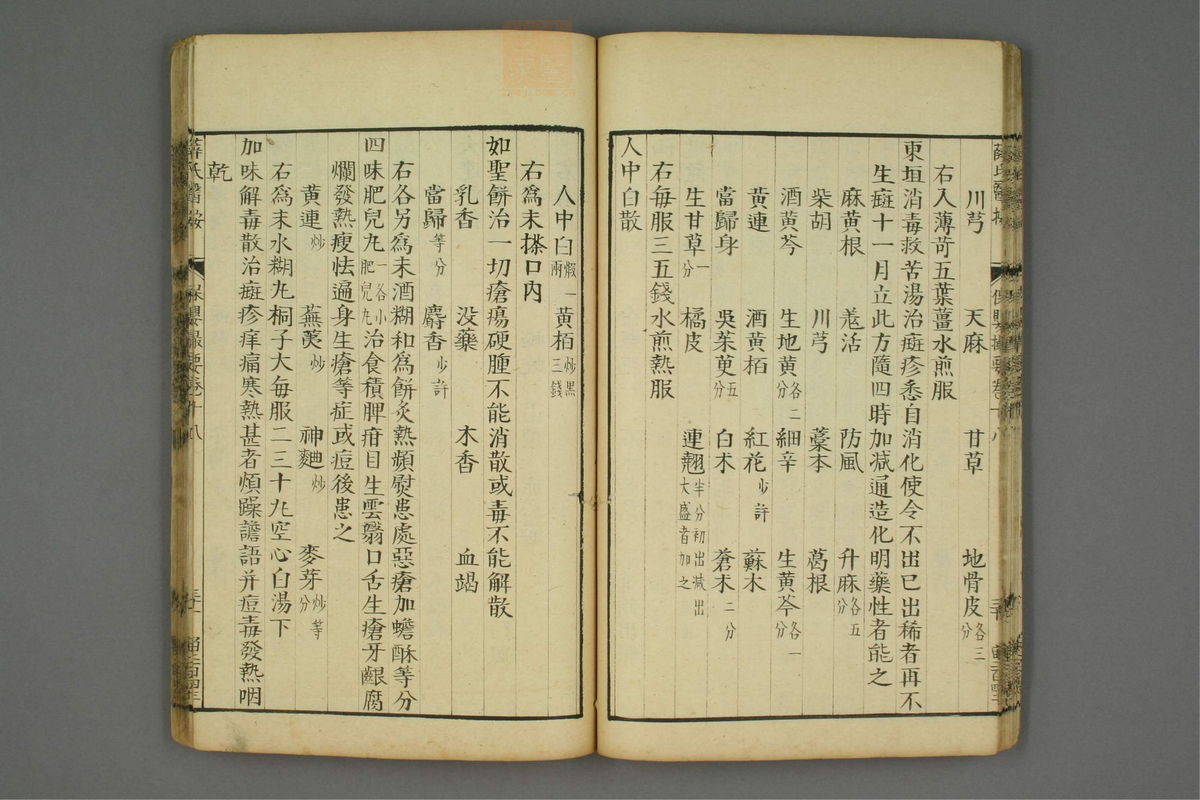 川芎 天麻 甘草 地骨皮各三分
右入薄荷五葉薑水煎服
東垣消毒救苦湯治癍疹悉自消化使令不出已出稀者再不
生癍十一月立此方隨四時加减通造化明藥性者能之
麻黄根 羗活 防風 升麻各五分
柴胡 川芎 藁本 葛根
酒黄芩 生地黄各二分 細辛 生黄芩各一分
黄連 酒黄栢 紅花少許 蘇木
當歸身 吳茱萸五分 白术 蒼术二分
生甘草一分 橘皮 連翹半分初出减出大盛者加之
右每服三五錢水煎熱服
人中白散
人中白煅一兩 黄栢炒黒三錢
右爲末搽口内
如聖餅治一切瘡瘍硬腫不能消散或毒不能解散
乳香 没藥 木香 血竭
當歸等分 麝香少許
右各另爲末酒糊和爲餅灸熱頻熨患處惡瘡加蟾酥等分
四味肥兒丸一各小肥兒丸治食積脾疳目生雲翳口舌生瘡牙齦腐
爛發熱瘦怯遍身生瘡等症或痘後患之
黄連炒 蕪荑炒 神麯炒 麥芽炒等分
右爲末水糊丸桐子大每服二三十丸空心白湯下
加味解毒散治癍疹痒痛寒熱甚者煩躁譫語并痘毒發熱咽
乾